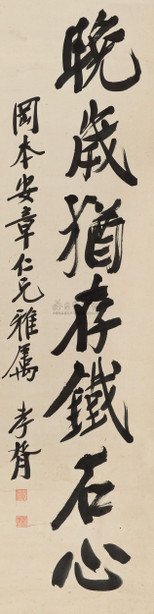 晚歲猶存鐵石心
岡本安章仁兄雅屬 孝胥